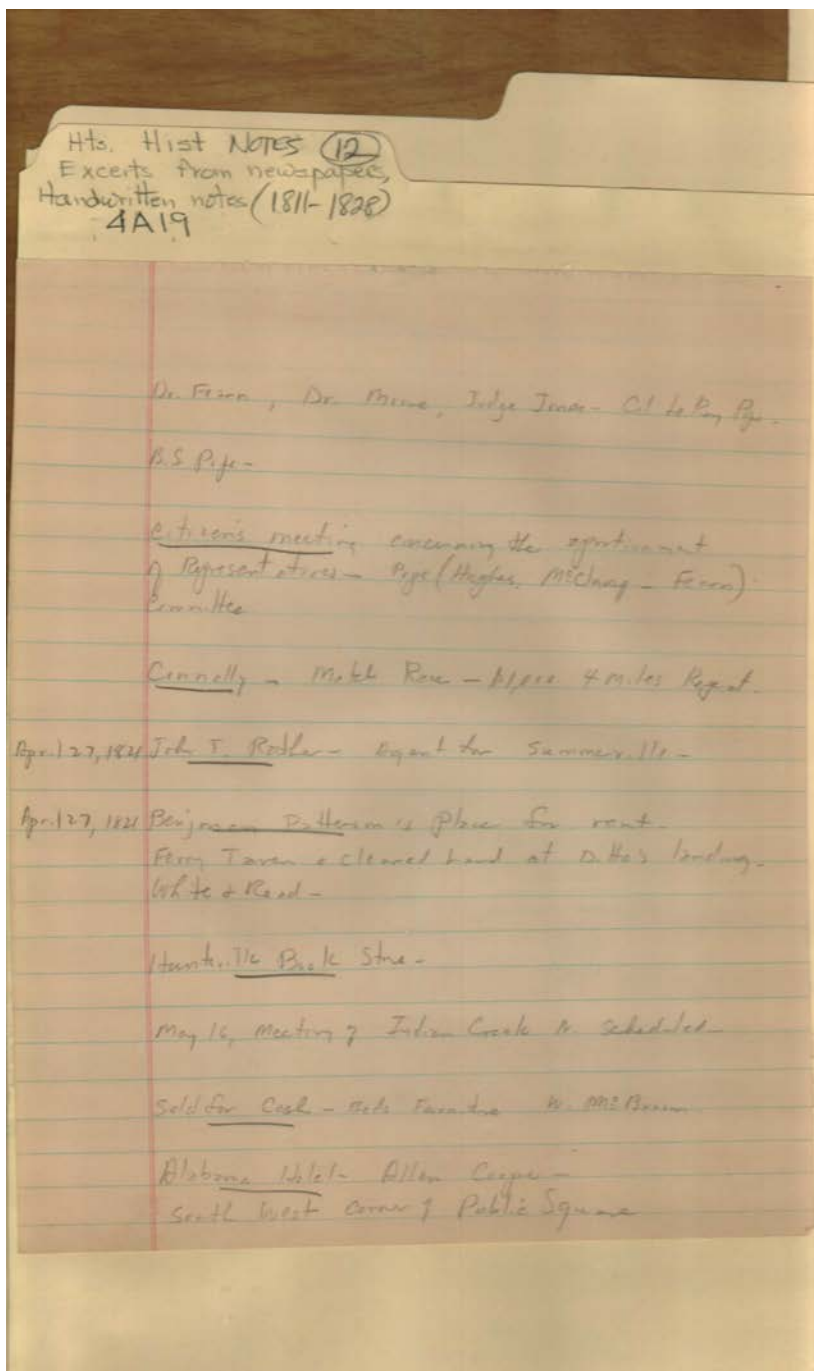 Hts. Hist NOTES 12
Excerts from newspapers,
Handwritten notes (1811-1828)
4A19
Dr. Fearn, Dr. Moore, Judge Jones - Col. LeRoy Pope.
B.S. Pope -
Citizen's meeting concerning the
of Representatives - Pope (Hughes, McClung - Fearn)
Committee
Connelly - Match Race - 4 miles Repeat.
April 27, 1821 John T. - Agent for Summerville -
April 27, 1821 Benjamin Patterson's Place for rent.
Ferry Taven & cleared Land at Ditto's landing -
White & Read -
Huntsville Book Store -
May 16, Meeting of Indian Creek N. scheduled -
Sold for Cash - Beds Furniture W. McBroom
Alabama Hotel - Allen Cooper -
South West Corner of Public Square